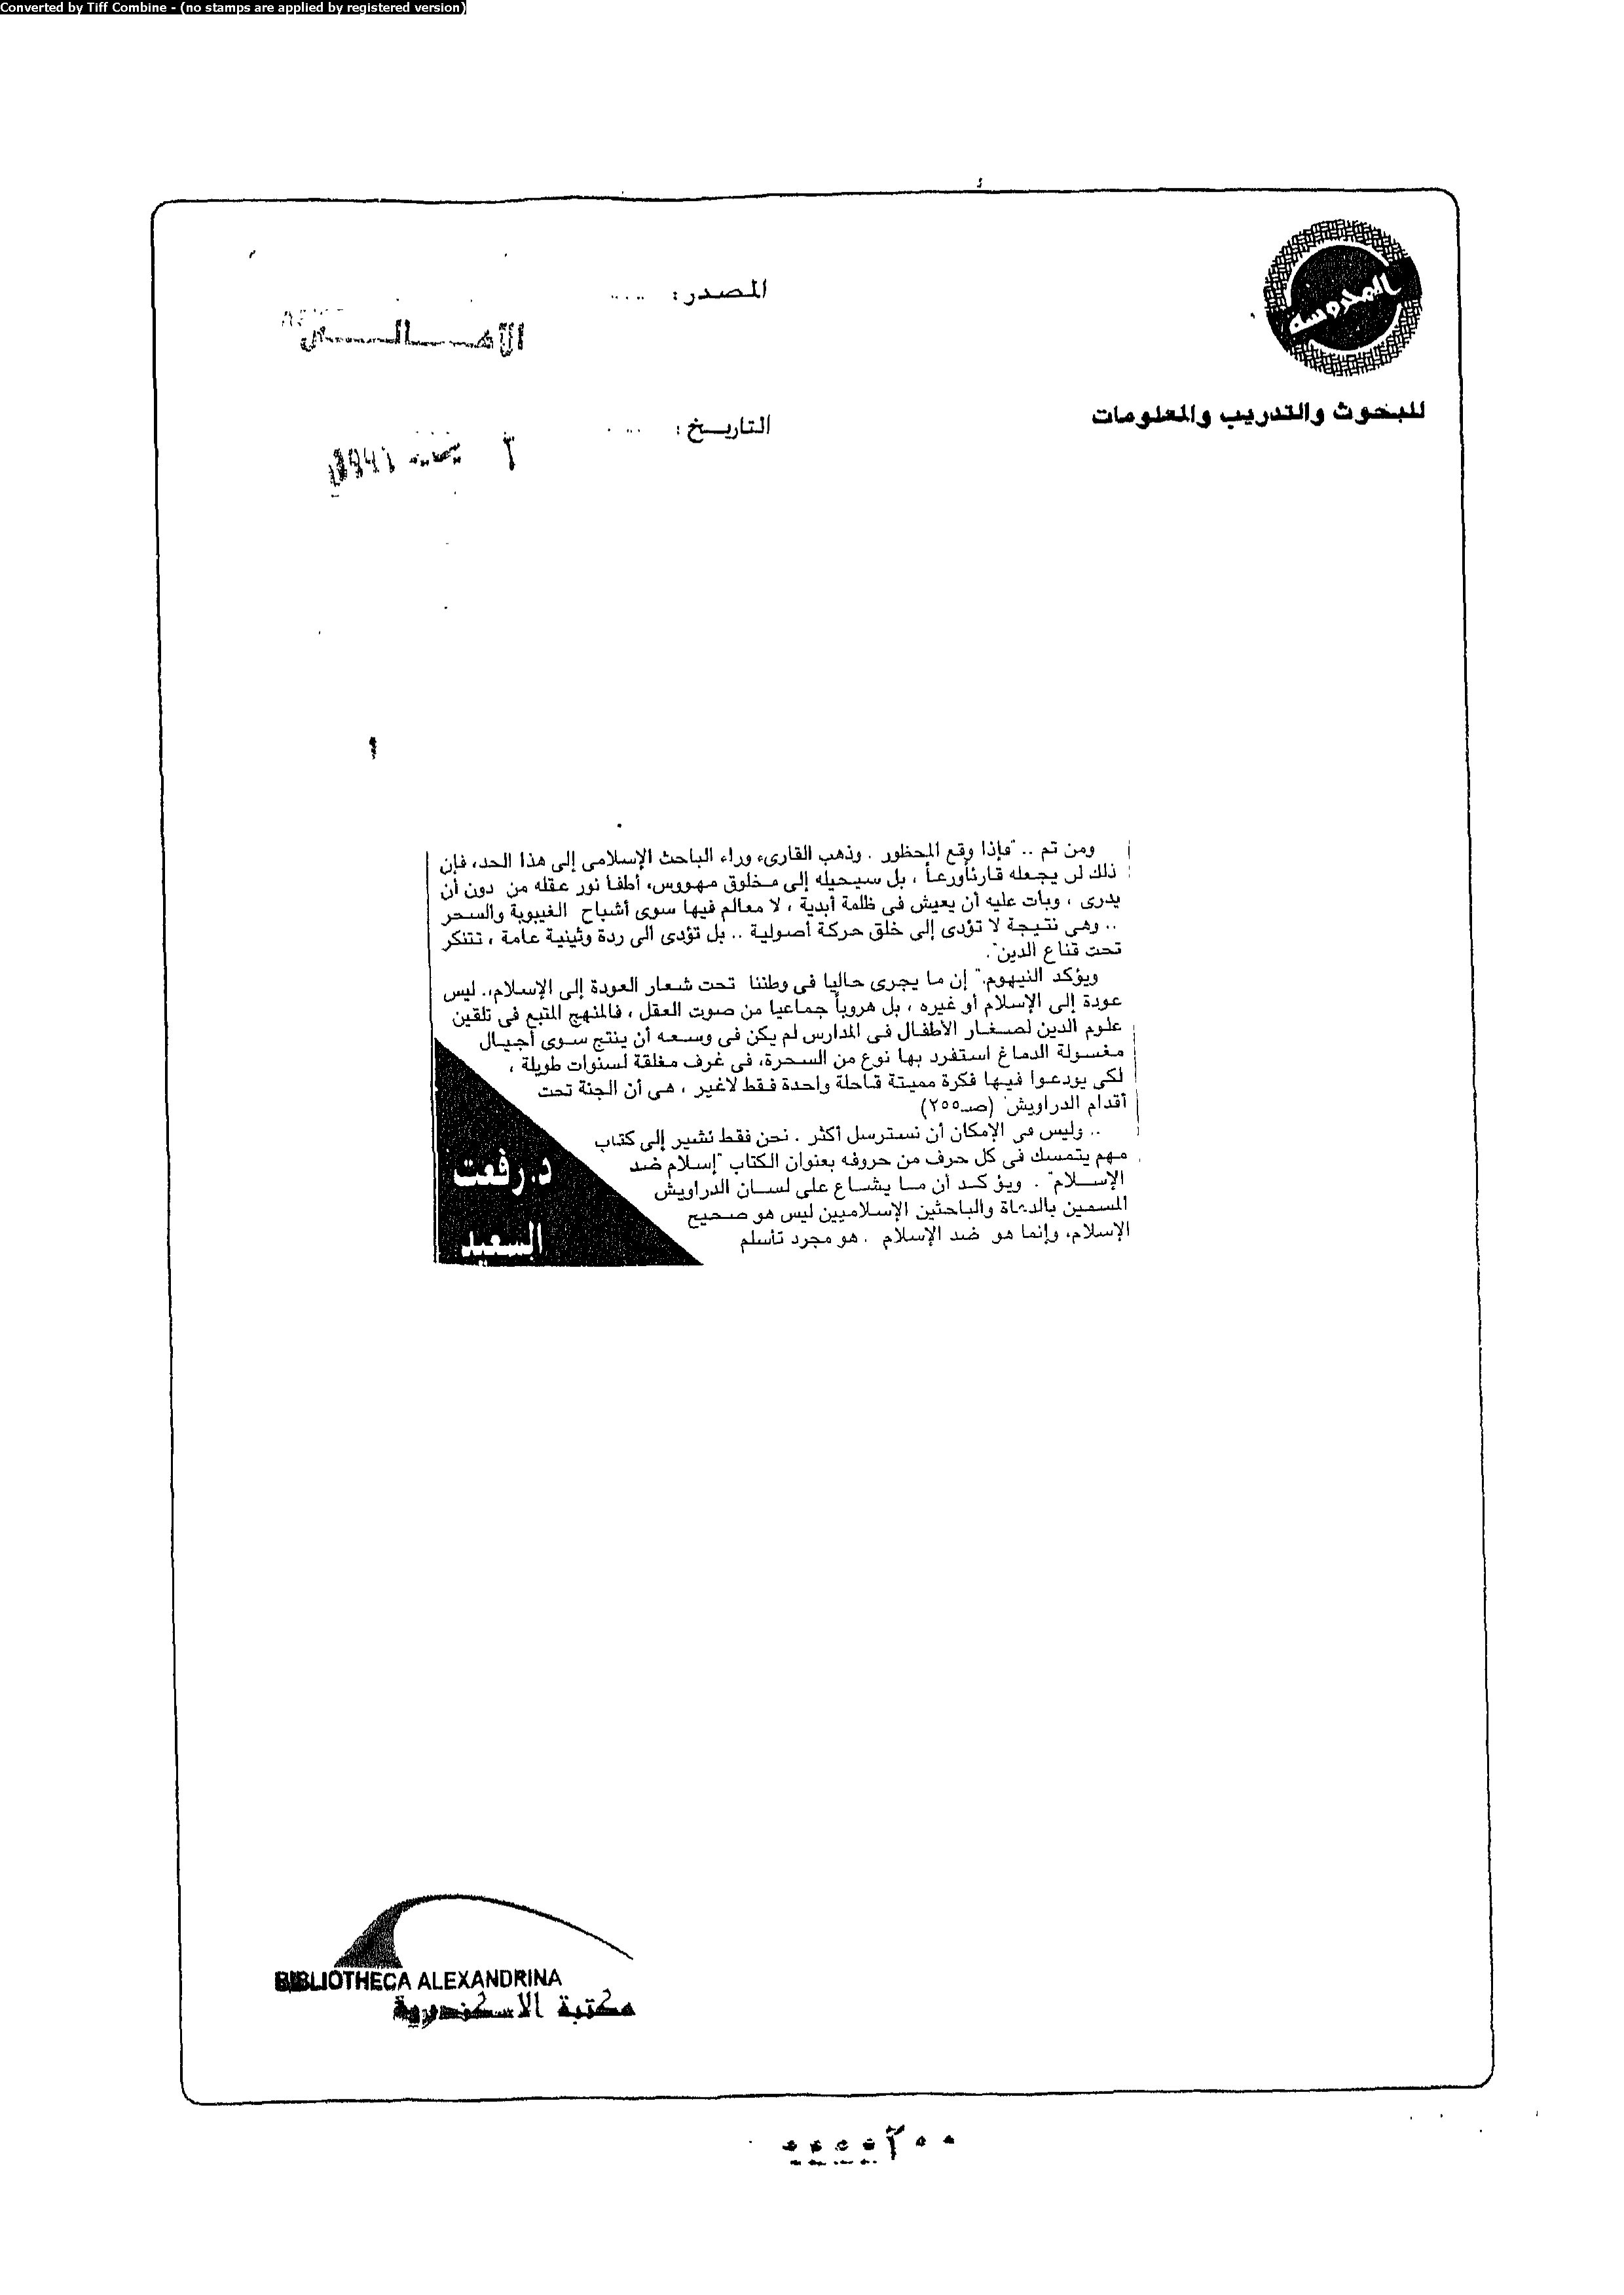 Converted by Tiff Combine - (no stamps are applied by registered version)
المحروسة
للبحوث والتدريب والمعلومات
المصدر:
الأهـــالـــــى
التاريخ:
ومن تم .. "فإذا وقع المحظور . وذهب القارىء وراء الباحث الإسلامى إلى هذا الحد، فإن
ذلك لن يجعله قارئاًورعاً ، بل سيحيله إلى مخلوق مهووس، أطفأ نور عقله من دون أن
يدرى ، وبات عليه أن يعيش فى ظلمة أبدية ، لا معالم فيها سوى أشباح الغيبوبة والسحر
.. وهى نتيجة لا تؤدى إلى خلق حركة أصولية .. بل تؤدى الى ردة وثينية عامة ، تتنكر
تحت قناع الدين".
ويؤكد النيهوم." إن ما يجرى حاليا فى وطننا تحت شعار العودة إلى الإسلام،. ليس
عودة إلى الإسلام أو غيره ، بل هروباً جماعيا من صوت العقل ، فالمنهج المتبع فى تلقين
علوم الدين لصغار الأطفال فى المدارس لم يكن فى وسعه أن ينتج سوى أجيال
مغسولة الدماغ استفرد بها نوع من السحرة، فى غرف مغلقة لسنوات طويلة ،
لكى يودعوا فيها فكرة مميتة قاحلة واحدة فقط لاغير ، هى أن الجنة تحت
أقدام الدراويش" (صـ٢٥٥)
.. وليس فى الإمكان أن نسترسل أكثر . نحن فقط نشير إلى كتاب
مهم يتمسك فى كل حرف من حروفه بعنوان الكتاب "إسلام ضد
الإسلام" . ويؤكد أن ما يشاع على لسان الدراويش
المسمين بالدعاة والباحثين الإسلاميين ليس هو صحيح
الإسلام، وإنما هو ضد الإسلام . هو مجرد تأسلم
د. رفعت
السعيد
BIBLIOTHECA ALEXANDRINA
مكتبة الاسكندرية